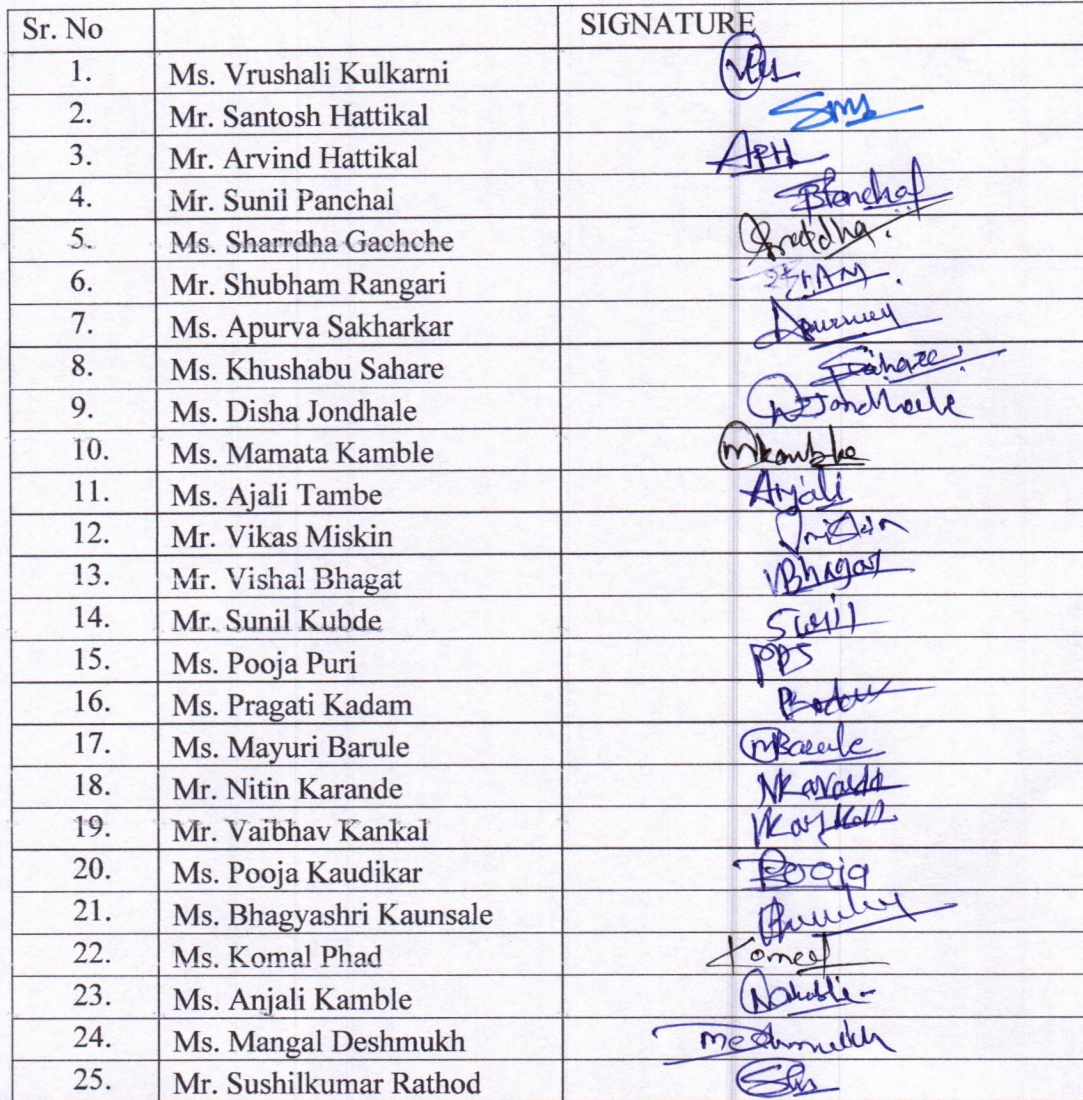 Sr. No SIGNATURE
1. Ms. Vrushali Kulkarni
2. Mr. Santosh Hattikal Sms
3. Mr. Arvind Hattikal APH
4. Mr. Sunil Panchal SPanchal
5. Ms. Sharrdha Gachche Shraddha.
6. Mr. Shubham Rangari
7. Ms. Apurva Sakharkar
8. Ms. Khushabu Sahare Sahare
9. Ms. Disha Jondhale Jondhale
10. Ms. Mamata Kamble mkamble
11. Ms. Ajali Tambe Anjali
12. Mr. Vikas Miskin Vmiskin
13. Mr. Vishal Bhagat VBhagat
14. Mr. Sunil Kubde Sunil
15. Ms. Pooja Puri PPS
16. Ms. Pragati Kadam
17. Ms. Mayuri Barule mBarule
18. Mr. Nitin Karande NKarande
19. Mr. Vaibhav Kankal VKankal
20. Ms. Pooja Kaudikar Pooja
21. Ms. Bhagyashri Kaunsale
22. Ms. Komal Phad Komal
23. Ms. Anjali Kamble
24. Ms. Mangal Deshmukh mdeshmukh
25. Mr. Sushilkumar Rathod